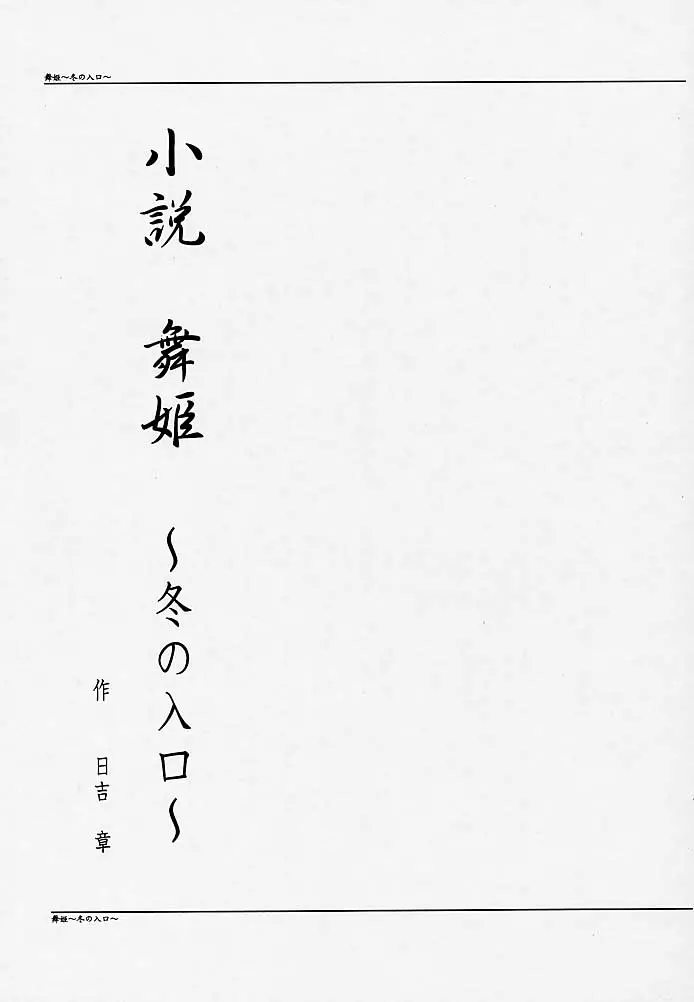 舞姫～冬の入口～
小説 舞姫 ～冬の入口～
作 日吉 章
舞姫～冬の入口～